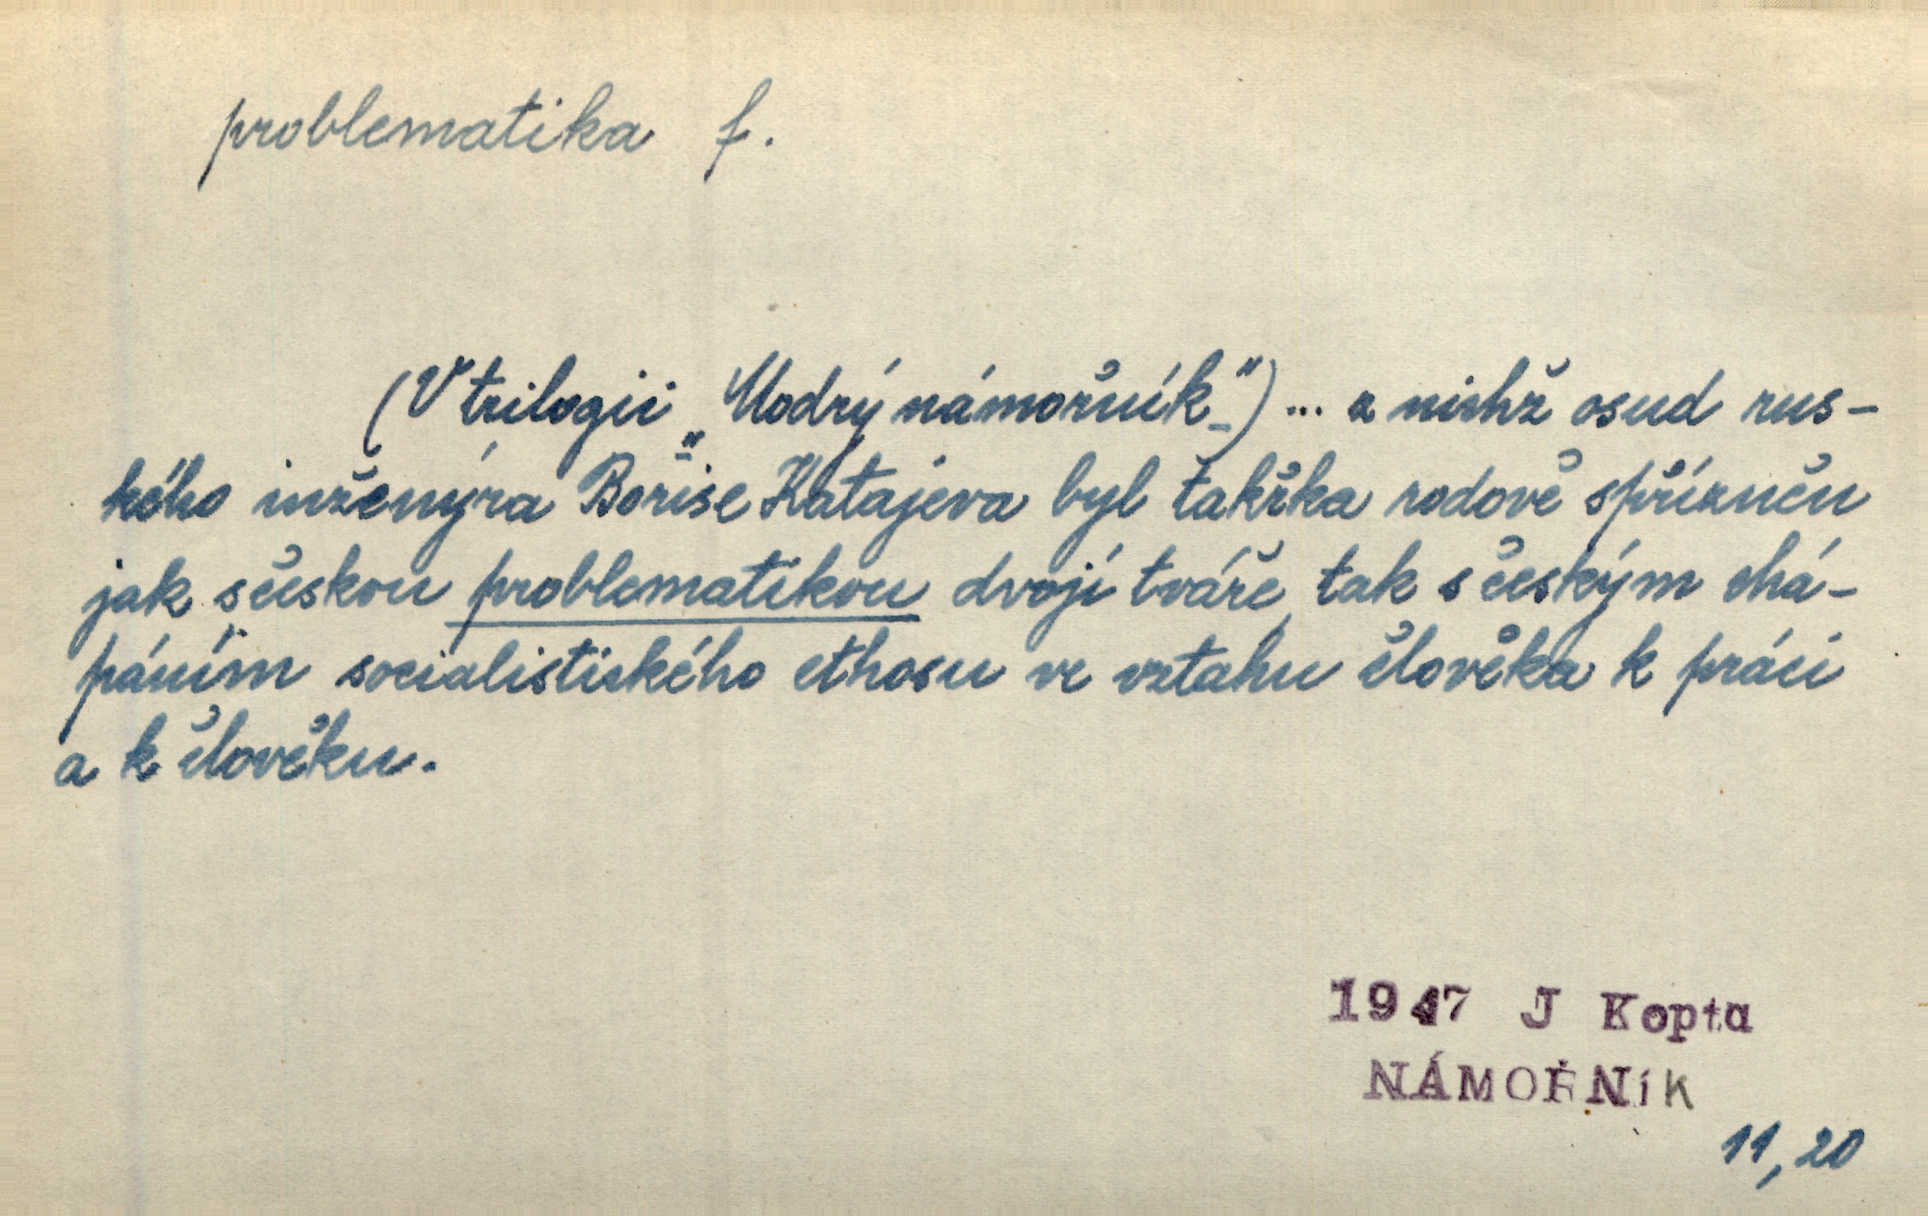 problematika f.
(V trilogii „Modrý námořník“) ... z nichž osud rus-
kého inženýra Borise Katajeva byl takřka rodově spřízněn
jak s českou problematikou dvojí tváře, tak s českým chá-
páním socialistického ethosu ve vztahu člověka k práci
a k člověku.
1947 J Kopta
NÁMOŘNíK
11,20